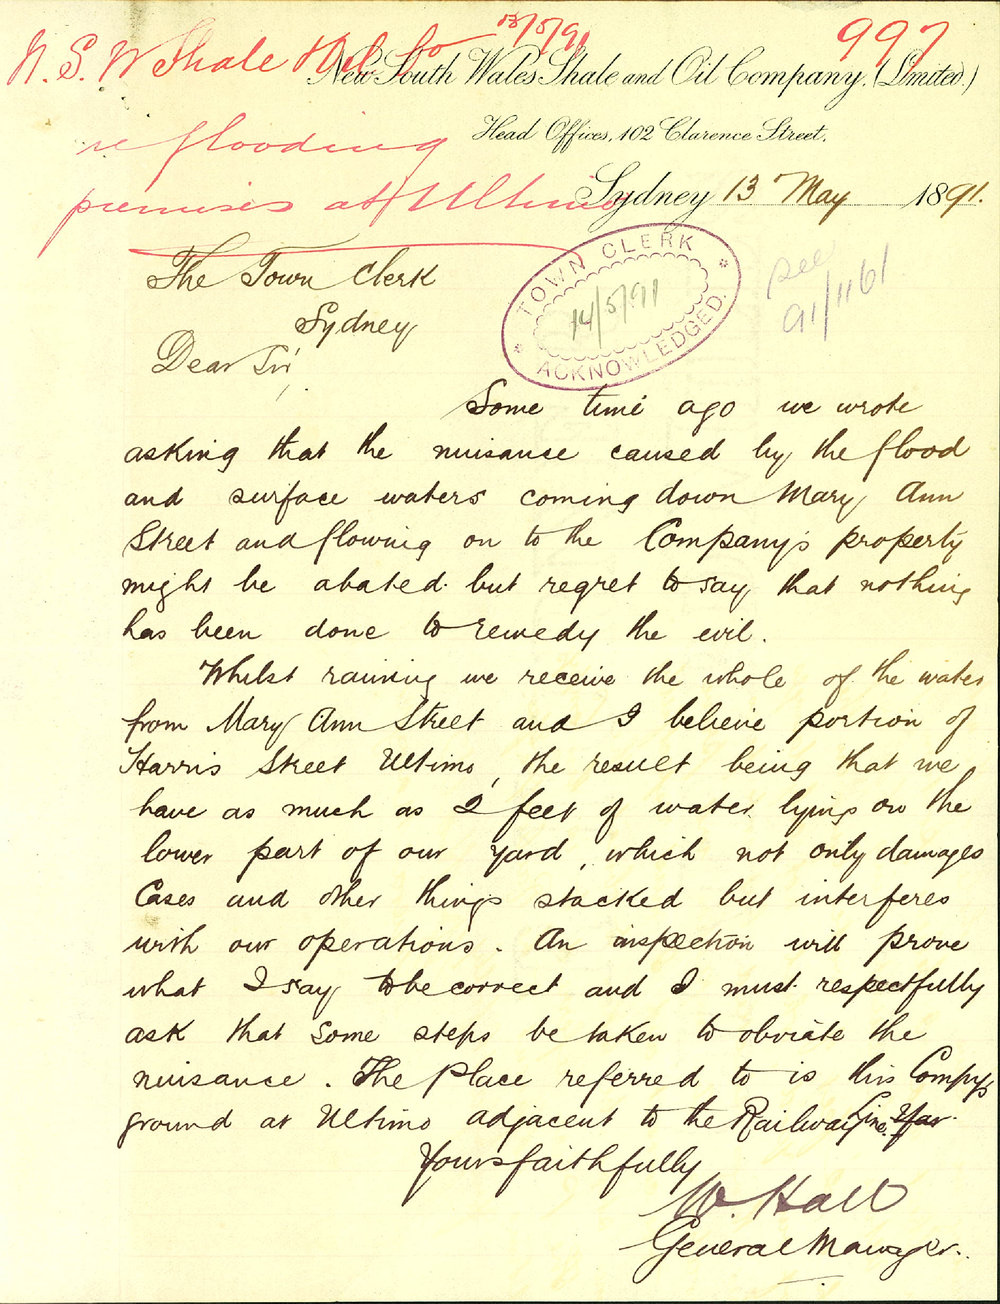 13/5/91
997
N. S. W Shale & Oil Co
New South Wales Shale and Oil Company, (Limited.)
re flooding
Head Offices, 102 Clarence Street,
premises at Ultimo
Sydney 13 May 1891.
The Town Clerk
Sydney
TOWN CLERK
14/5/91
ACKNOWLEDGED.
see
91/1161
Dear Sir,
Some time ago we wrote
asking that the nuisance caused by the flood
and surface waters coming down Mary Ann
Street and flowing on to the Company's property
might be abated but regret to say that nothing
has been done to remedy the evil.
Whilst raining we receive the whole of the water
from Mary Ann Street and I believe portion of
Harris Street Ultimo, the result being that we
have as much as 2 feet of water lying on the
lower part of our yard, which not only damages
Cases and other things stacked but interferes
with our operations. An inspection will prove
what I say to be correct and I must respectfully
ask that some steps be taken to obviate the
nuisance. The place referred to is this Compys
ground at Ultimo adjacent to the Railway Line
Yours faithfully
W. Hall
General Manager.